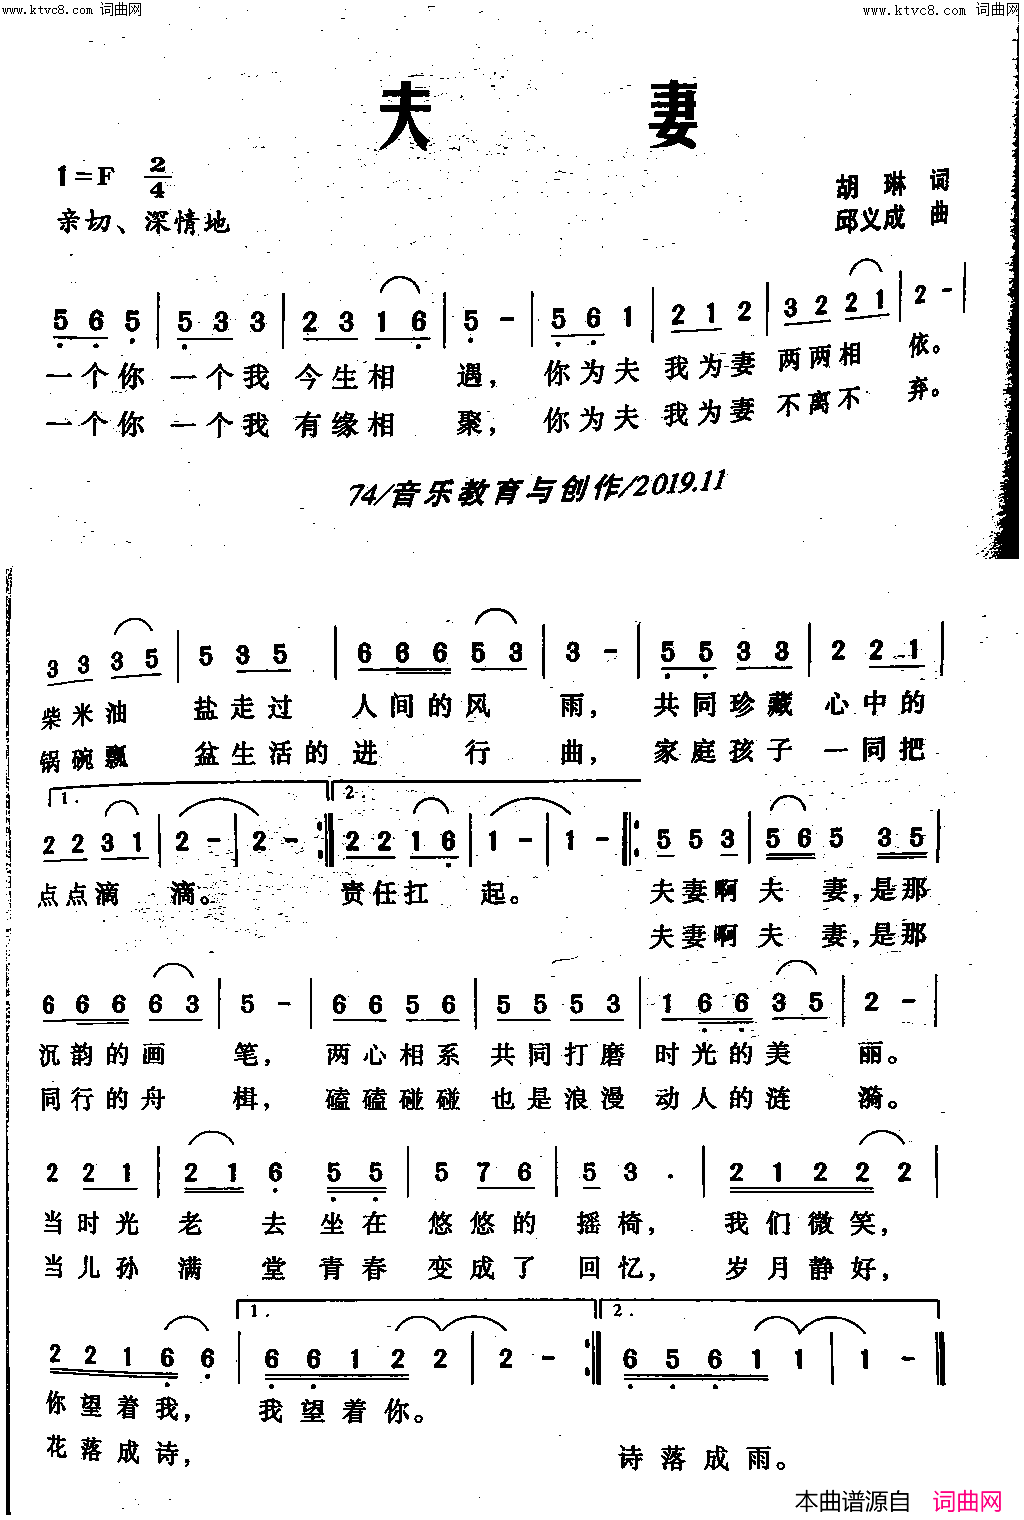 www.ktvc8.com 词曲网 www.ktvc8.com 词曲网
夫 妻
1=F 2/4
胡 琳 词
亲切、深情地
邱义成 曲
5 6 5 | 5 3 3 | 2 3 1 6 | 5 - | 5 6 1 | 2 1 2 | 3 2 2 1 | 2 - |
一个你 一个我 今生相 遇， 你为夫 我为妻 两两相 依。
一个你 一个我 有缘相 聚， 你为夫 我为妻 不离不 弃。
74/音乐教育与创作/2019.11
3 3 3 5 | 5 3 5 | 6 6 6 5 3 | 3 - | 5 5 3 3 | 2 2 1 |
柴米油 盐走过 人间的风 雨， 共同珍藏 心中的
锅碗瓢 盆生活的 进 行 曲， 家庭孩子 一同把
1. 2.
2 2 3 1 | 2 - | 2 - :| 2 2 1 6 | 1 - | 1 - :|: 5 5 3 | 5 6 5 3 5 |
点点滴 滴。 责任扛 起。 夫妻啊 夫 妻，是那
夫妻啊 夫 妻，是那
6 6 6 6 3 | 5 - | 6 6 5 6 | 5 5 5 3 | 1 6 6 3 5 | 2 - |
沉韵的画 笔， 两心相系 共同打磨 时光的美 丽。
同行的舟 楫， 磕磕碰碰 也是浪漫 动人的涟 漪。
2 2 1 | 2 1 6 5 5 | 5 7 6 | 5 3 . | 2 1 2 2 2 |
当时光 老 去 坐在 悠悠的 摇椅， 我们微笑，
当儿孙 满 堂 青春 变成了 回忆， 岁月静好，
1. 2.
2 2 1 6 6 | 6 6 1 2 2 | 2 - :| 6 5 6 1 1 | 1 - ||
你望着我， 我望着你。
花落成诗， 诗落成雨。
本曲谱源自 词曲网